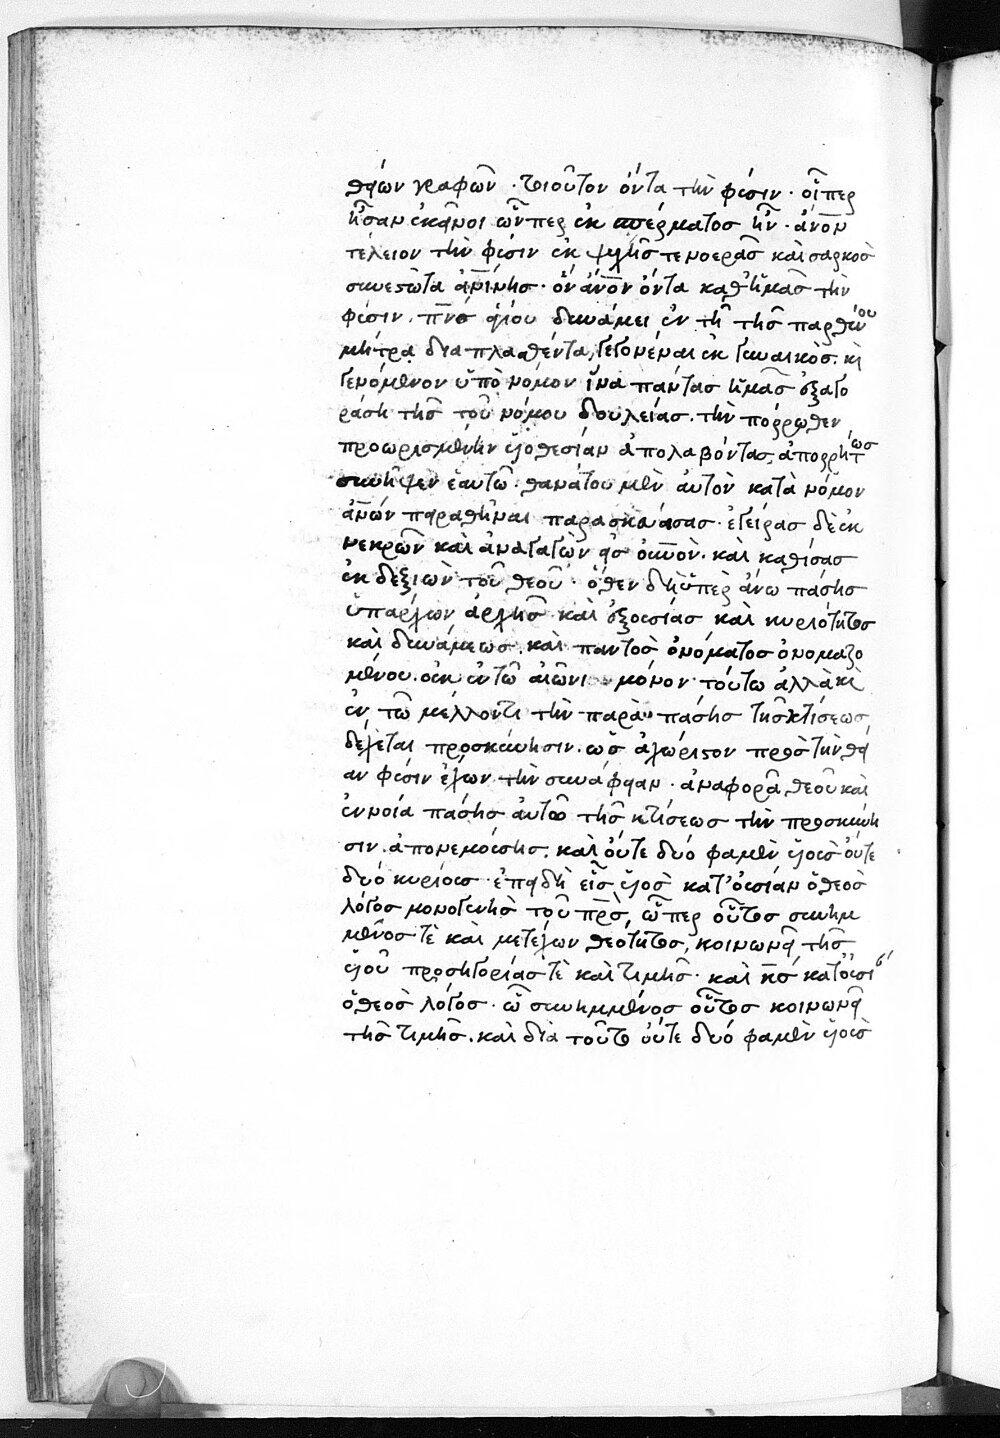 θείων γραφῶν· τοιοῦτον ὄντα τὴν φύσιν· οἷπερ
ἦσαν ἐκεῖνοι ὧνπερ ἐκ σπέρματος ἦν· ἄνον
τέλειον τὴν φύσιν ἐκ ψυχῆς τε νοερᾶς καὶ σαρκὸς
συνεστῶτα ἀνίνης· ὃν ἄνον ὄντα καθ' ἡμᾶς τὴν
φύσιν. πνς ἁγίου δυνάμει ἐν τῇ τῆς παρθένου
μήτρα διαπλασθέντα, γεγονέναι ἐκ γυναικὸς. κὶ
γενόμενον ὑπὸ νόμον ἵνα πάντας ἡμᾶς ἐξαγο
ράση τῆς τοῦ νόμου δουλείας. τὴν πόρρωθεν
προωρισμένην υἱοθεσίαν ἀπολαβόντας, ἀπορρήτως
συνῆψεν ἑαυτῶ· θανάτου μὲν αὐτὸν κατὰ νόμον
ἀνων πειραθῆναι παρασκευάσας· ἐγείρας δὲ ἐκ
νεκρῶν καὶ ἀναγαγὼν εἰς οὐνὸν. καὶ καθίσας
ἐκ δεξιῶν τοῦ θεοῦ· ὅθεν δὴ ὑπὲρ ἄνω πάσης
ὑπάρχων ἀρχῆς καὶ ἐξουσίας καὶ κυριότητος
καὶ δυνάμεως. καὶ παντὸς ὀνόματος ὀνομαζο
μένου. οὐκ ἐν τῶ αἰῶνι μόνον τούτω ἀλλὰ κὶ
ἐν τῶ μέλλοντι τὴν παρὰ πάσης τῆς κτίσεως
δέχεται προσκύνησιν. ὡς ἀχώριστον πρὸς τὴν θεί
αν φύσιν ἔχων τὴν συνάφειαν· ἀναφορᾶ θεοῦ καὶ
ἐννοία πάσης αὐτῶ τῆς κτίσεως τὴν προσκύνη
σιν. ἀπονεμούσης. καὶ οὔτε δύο φαμὲν υἱοὺς οὔτε
δύο κυρίους· ἐπειδὴ εἷς υἱὸς κατ' οὐσίαν ὁ θεὸς
λόγος μονογενὴς τοῦ πρς, ὧπερ οὗτος συνημ
μένος τὲ καὶ μετέχων θεότητος, κοινωνεῖ τῆς
υἱοῦ προσηγορίας τὲ καὶ τιμῆς· καὶ κς κατ' οὐσί
ὁ θεὸς λόγος· ὧ συνημμένος οὗτος κοινωνεῖ
τῆς τιμῆς. καὶ διὰ τοῦτο οὔτε δύο φαμὲν υἱοὺς